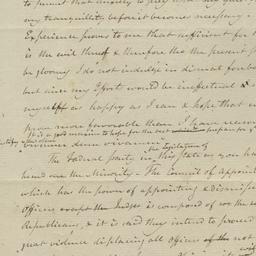 to permit that anxiety to prey upon
my tranquility before it becomes necessary
Experience proves to me that sufficient for t
is the evil thereof & therefore tho the present p
be gloomy I do not indulge in dismal forebo
but since my Effort would be ineffectual &
myself as happy as I can & hope that
prove more favorable than I have reason
It is a good maxim to hope for the best prepare for
vivimus dum vivamus
the Legislature of
The Federal party in this State as you ha
heard are the Minority. The Council of Appoint
which has the power of appointing & dismissi
Officers except the Judges is composed of
Republicans, & it is said they intend to proceed
great violence displacing all officers of the not